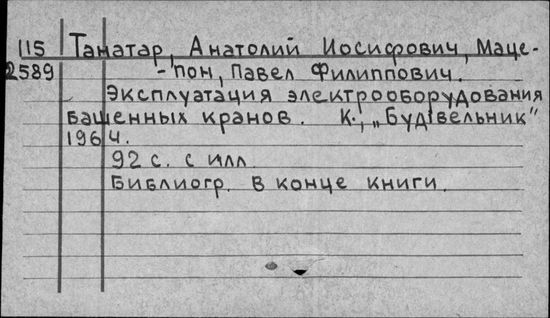 115 Танатар, Анатолий Иосифович, Маце-
2589 -пон, Павел Филиппович.
Эксплуатация электрооборудования
башенных кранов. К., „Будівельник"
1964.
92 с. с илл.
Библиогр. в конце книги.